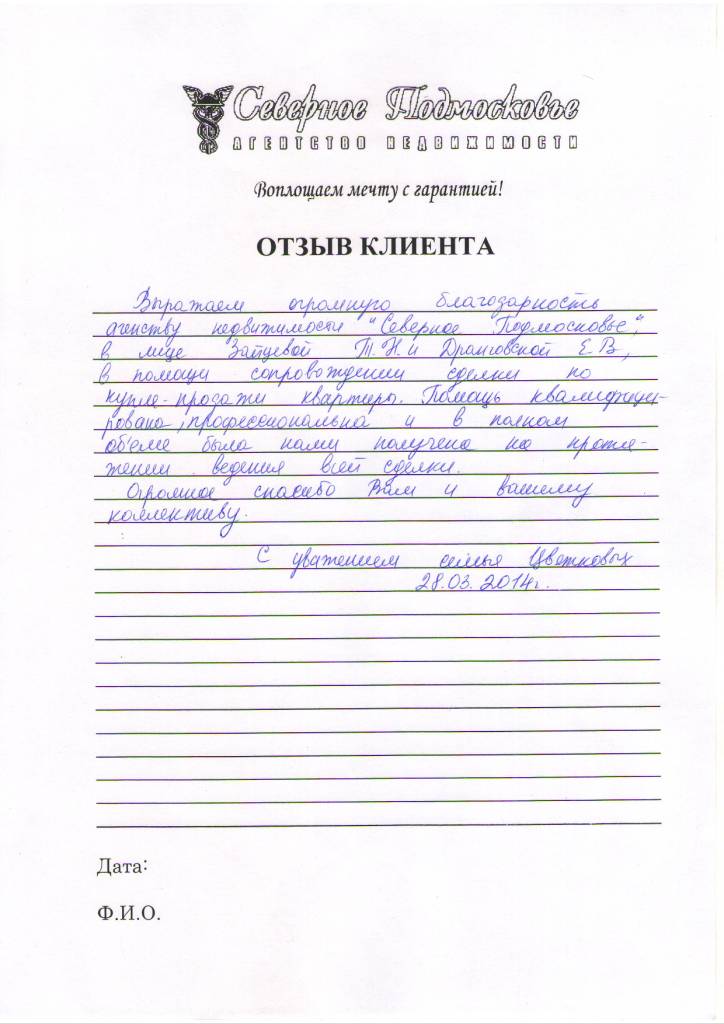 Северное Подмосковье
АГЕНТСТВО НЕДВИЖИМОСТИ
Воплощаем мечту с гарантией!
ОТЗЫВ КЛИЕНТА
Выражаем огромную благодарность
агенству недвижимости "Северное Подмосковье",
в лице Зайцевой Т.Н. и Драговской Е.В,
в помощи сопровождении сделки по
купле-продажи квартиры. Помощь квалифици-
рована, профессиональна и в полном
объеме была нами получена на протя-
жении ведения всей сделки.
Огромное спасибо Вам и вашему
коллективу.
С уважением семья Цветковых
28.03.2014г.
Дата:
Ф.И.О.